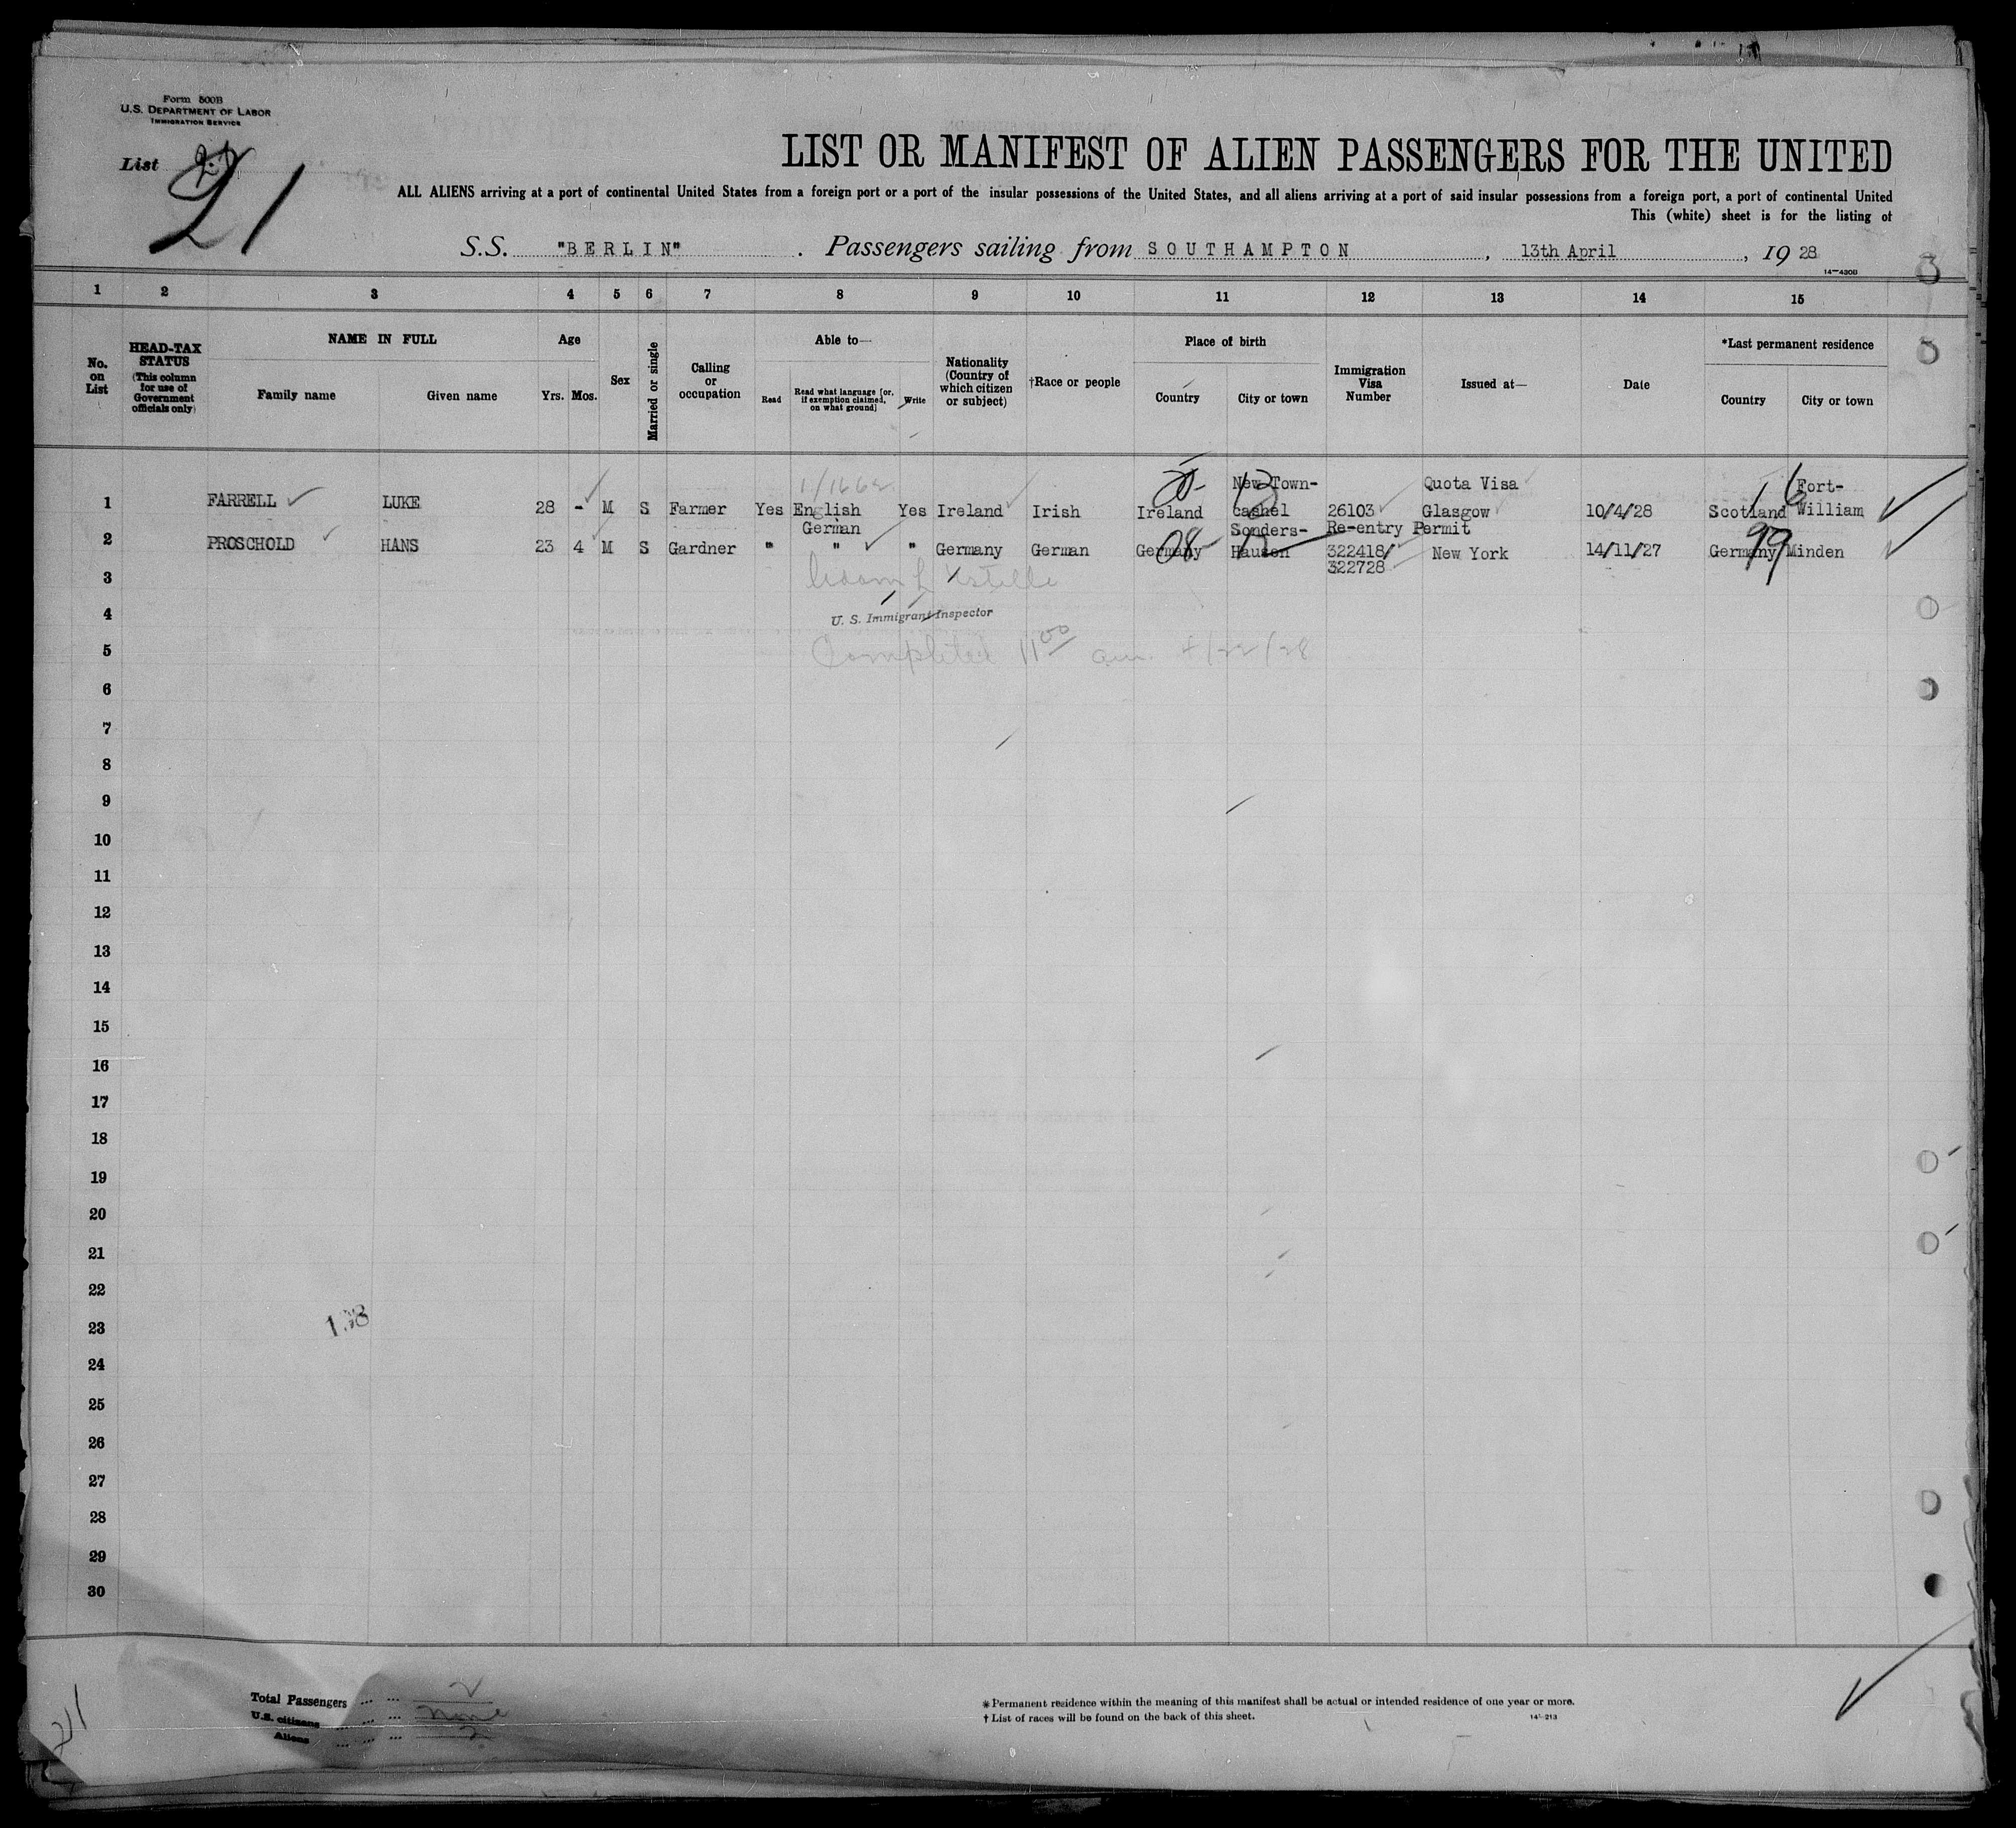 Form 500B
U.S. DEPARTMENT OF LABOR
IMMIGRATION SERVICE
List 21
21
LIST OR MANIFEST OF ALIEN PASSENGERS FOR THE UNITED
ALL ALIENS arriving at a port of continental United States from a foreign port or a port of the insular possessions of the United States, and all aliens arriving at a port of said insular possessions from a foreign port, a port of continental United
This (white) sheet is for the listing of
S.S. "BERLIN" . Passengers sailing from SOUTHAMPTON , 13th April , 1928
14—430B
1 2 3 4 5 6 7 8 9 10 11 12 13 14 15
No. on List
HEAD-TAX STATUS (This column for use of Government officials only)
NAME IN FULL
Family name Given name
Age
Yrs. Mos.
Sex
Married or single
Calling or occupation
Able to—
Read Read what language [or, if exemption claimed, on what ground] Write
Nationality (Country of which citizen or subject)
†Race or people
Place of birth
Country City or town
Immigration Visa Number
Issued at—
Date
*Last permanent residence
Country City or town
New Town- Quota Visa Fort-
1 FARRELL LUKE 28 - M S Farmer Yes English Yes Ireland Irish Ireland cashel 26103 Glasgow 10/4/28 Scotland William
16
German Sonders- Re-entry Permit
2 PROSCHOLD HANS 23 4 M S Gardner " " " Germany German Germany Hausen 322418/ New York 14/11/27 Germany Minden
08 99
322728
3
4
U. S. Immigrant Inspector
5
Completed 1100 am. 4/22/28
6
7
8
9
10
11
12
13
14
15
16
17
18
19
20
21
22
23
24
25
26
27
28
29
30
Total Passengers ... ... 2
U.S. citizens ... ... none
Aliens ... ... ... 2
* Permanent residence within the meaning of this manifest shall be actual or intended residence of one year or more.
† List of races will be found on the back of this sheet.
14—213
21